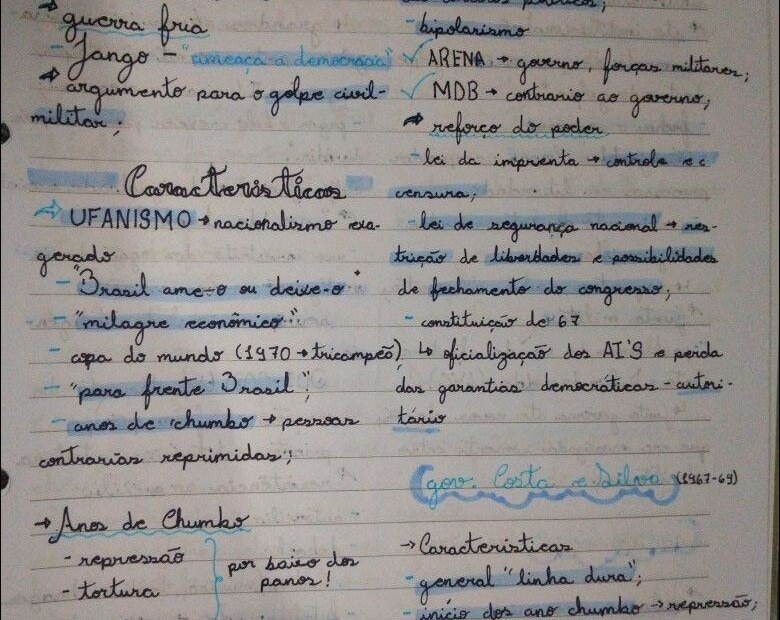 → guerra fria
- Jango - "ameaça a democracia"
→ argumento para o golpe civil-
militar;
Características
→ UFANISMO → nacionalismo exa-
gerado
- "Brasil ame-o ou deixe-o"
- "milagre econômico";
- copa do mundo (1970 → tricampeõ)
- "para frente Brasil";
- anos de chumbo → pessoas
contrarias reprimidas;
→ Anos de Chumbo
- repressão
- tortura
por baixo dos
panos!
- bipolarismo
✓ ARENA → governo, forças militares;
✓ MDB → contrario ao governo;
→ reforço do poder
- lei da imprenta → controle e c
censura;
- lei de segurança nacional → res-
trição de liberdades e possibilidades
de fechamento do congresso;
- constituição de 67
↳ oficialização dos AI'S e perda
das garantias democráticas - autori-
tário
gov. Costa e Silva (1967-69)
→ Caracteristicas
- general "linha dura";
- início dos ano chumbo → repressão;